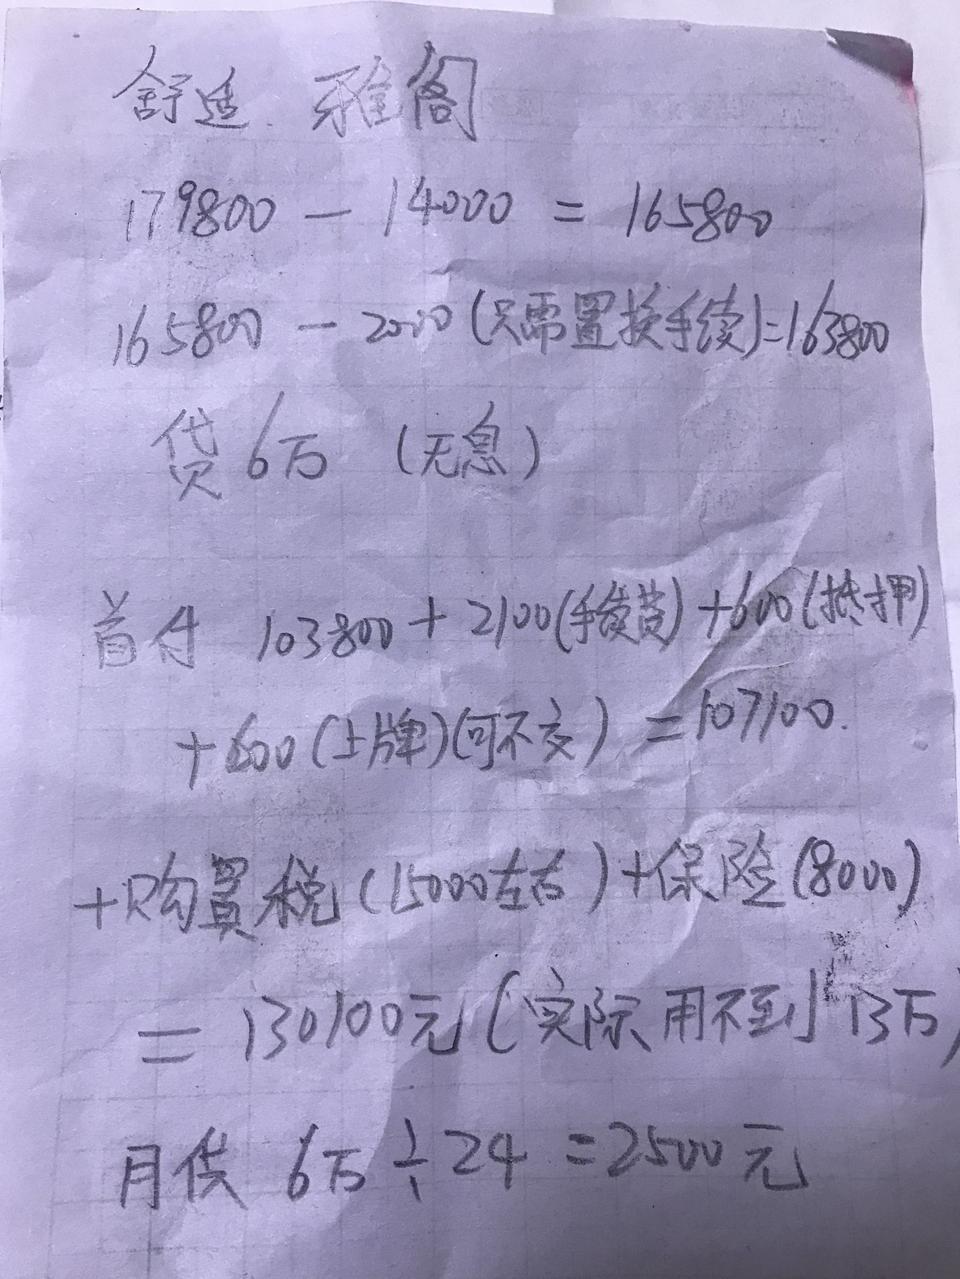 舒适 雅阁
179800 - 14000 = 165800
165800 - 2000 (只需置换手续)=163800
贷6万 (无息)
首付 103800 + 2100(手续费) +600(抵押)
+600(上牌)(可不交) =107100.
+购置税(15000左右)+保险(8000)
= 130100元(实际用不到13万)
月供 6万÷24 =2500元